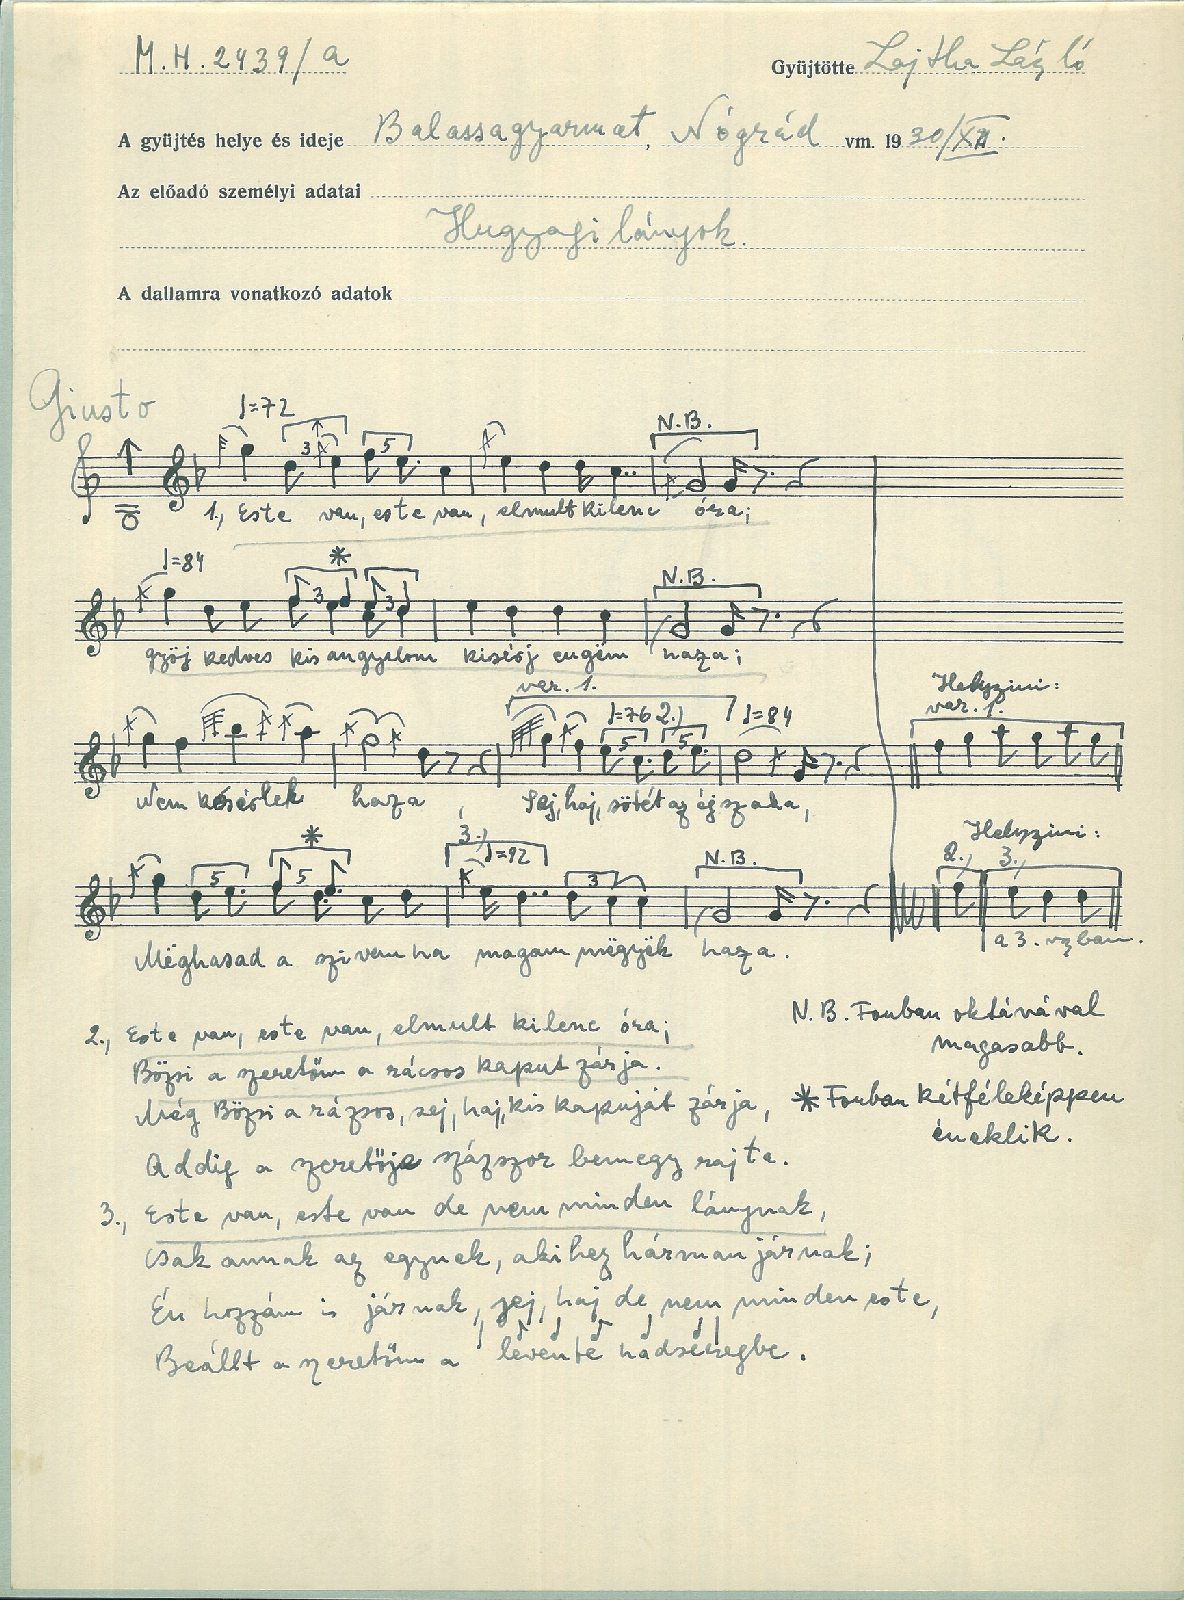 M.H. 2439/a
Gyűjtötte Lajtha László
A gyűjtés helye és ideje Balassagyarmat, Nógrád vm. 1930/XII.
Az előadó személyi adatai
Hugyagi lányok.
A dallamra vonatkozó adatok
Giusto
♩=72
3 5 N.B.
1., Este van, este van, elmult kilenc óra;
♩=84 * N.B.
3 3
gyöj kedves kis angyalom kisérj engëm haza;
var. 1. ♩=76 2.) ♩=84
5 5
Nem késérlek haza, Sej, haj, sötét az éjszaka,
Helyszini:
var. 1.
* 3.) ♩=92 N.B.
5 5 3
Mëghasad a szivem ha magam mëgyëk haza.
Helyszini:
2.) 3.)
a 3. vszban.
2., Este van, este van, elmult kilenc óra;
Bözsi a szeretőm a rácsos kaput zárja.
Még Bözsi a rázsos, sej, haj, kis kapuját zárja,
Addig a szeretője százszor bemegy rajta.
3., Este van, este van de nem minden lánynak,
csak annak az egynek, akihez hárman járnak;
Én hozzám is járnak, sej, haj de nem minden este,
Beállt a szeretőm a levente hadseregbe.
N.B. Fonban oktávával
magasabb.
* Fonban kétféleképpen
éneklik.